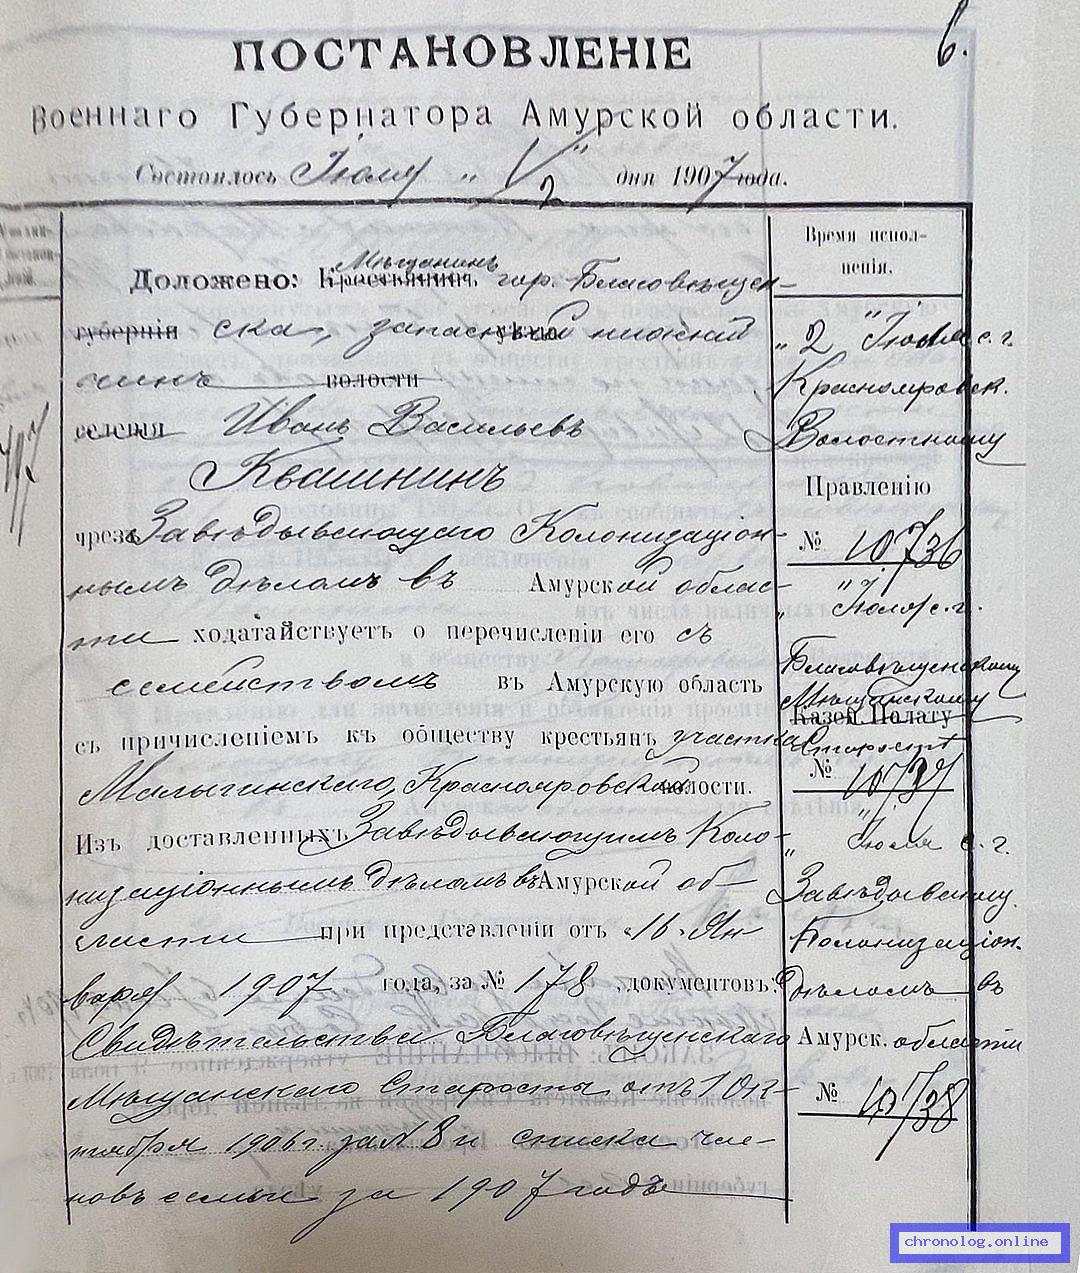 6.
ПОСТАНОВЛЕНІЕ
Военнаго Губернатора Амурской области.
Состоялось Іюля „ 2 " дня 1907 года.
Время испол-
ненія.
Мѣщанинъ
Доложено: Крестьянинъ гор. Благовѣщен-
губерніи ска, запасный нижній
чинъ волости
селенія Иванъ Васильевъ
Квашнинъ
чрезъ Завѣдывающаго Колонизаціон-
нымъ дѣломъ въ Амурской облас-
ти ходатайствуетъ о перечисленіи его съ
семействомъ въ Амурскую область
съ причисленіемъ къ обществу крестьянъ участка
Малыгинскаго, Краснояровской волости.
Изъ доставленныхъ Завѣдывающимъ Коло-
низаціоннымъ дѣломъ въ Амурской об-
ласти при представленіи отъ „16" Ян-
варя 1907 года, за № 178, документовъ:
Свидѣтельства Благовѣщенскаго
Мѣщанскаго Старосты отъ 10 Ок-
тября 1906 г. за № 8 и списка чле-
новъ семьи за 1907 годъ
„ 2 " Іюля с. г.
Краснояровск.
Волостному
Правленію
№ 10736
„ " Іюля с. г.
Благовѣщенскому
Мѣщанскому
Казен. Палату
Старостѣ
№ 10737
„ " Іюля с. г.
Завѣдывающ.
Колонизаціон.
дѣломъ въ
Амурск. области
№ 10738
chronolog.online